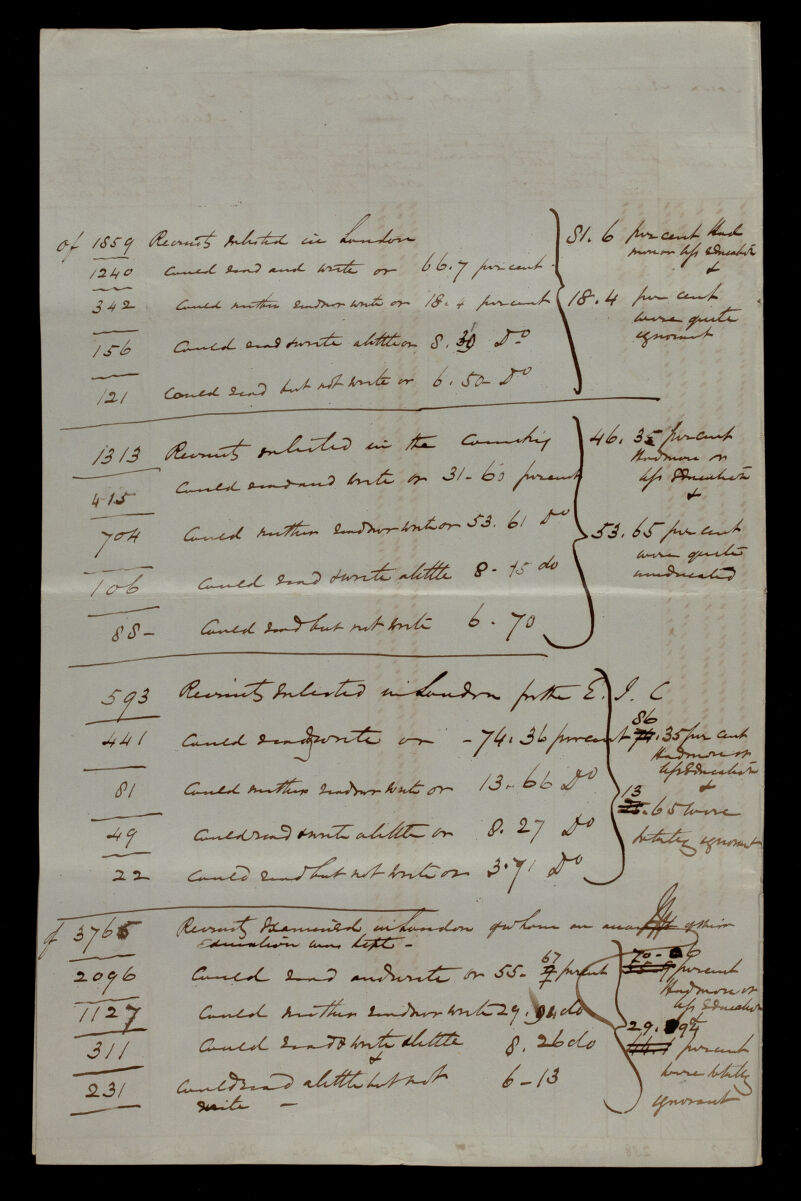 of 1859 Recruits enlisted in London
1240 could read and write or 66.7 per cent
342 could neither read nor write or 18.4 per cent
156 could read & write a little or 8.39 Do
121 could read but not write or 6.50 Do
81.6 per cent Had
more or less Education
&
18.4 per cent
were quite
ignorant
1313 Recruits enlisted in the Country
415 could read and write or 31-60 per cent
704 could neither read nor write or 53.61 Do
106 could read & write a little 8- do
88- could read but not write 6.70
46.35 per cent
Had more or
less Education
&
53.65 per cent
were quite
uneducated
593 Recruits enlisted in London for the E. I. C
441 could read & write or -74.36 per cent
81 could neither read nor write or 13.66 Do
49 could read & write a little or 8.27 Do
22 could read but not write or 3.71 Do
86
.35 per cent
Had more or
less Education
&
13
.65 were
totally ignorant
of 3765 Recruits Examined in London of whom an of their
Education was kept -
2096 could read and write or 55-67 per cent
1127 could neither read nor write 29.94 do
311 could read & write a little 8.26 do
&
231 could read a little but not 6-13
write -
70-06
per cent
Had more or
less Education
29.94
per cent
were totally
ignorant